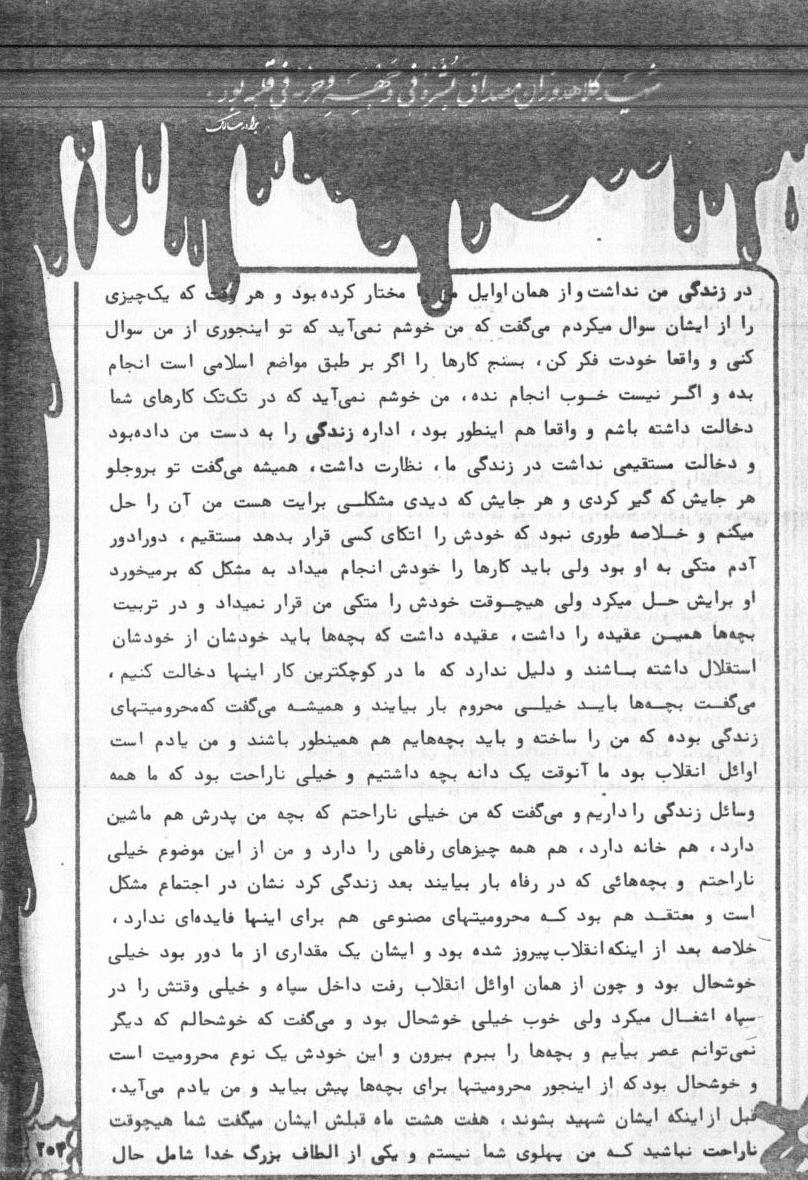 شهید کلاهدوزان مصداق بُشره فی وَجهِهِ وَ حزنه فی قلبه بود.
برادر ...
در زندگی من نداشت و از همان اوایل من را مختار کرده بود و هر وقت که یک‌چیزی
را از ایشان سوال میکردم می‌گفت که من خوشم نمی‌آید که تو اینجوری از من سوال
کنی و واقعا خودت فکر کن، بسنج کارها را اگر بر طبق مواضع اسلامی است انجام
بده و اگر نیست خوب انجام نده، من خوشم نمی‌آید که در تک‌تک کارهای شما
دخالت داشته باشم و واقعا هم اینطور بود، اداره زندگی را به دست من داده‌بود
و دخالت مستقیمی نداشت در زندگی ما، نظارت داشت، همیشه می‌گفت تو بروجلو
هر جایش که گیر کردی و هر جایش که دیدی مشکلی برایت هست من آن را حل
میکنم و خلاصه طوری نبود که خودش را اتکای کسی قرار بدهد مستقیم، دورادور
آدم متکی به او بود ولی باید کارها را خودش انجام میداد به مشکل که برمیخورد
او برایش حل میکرد ولی هیچوقت خودش را متکی من قرار نمیداد و در تربیت
بچه‌ها همین عقیده را داشت، عقیده داشت که بچه‌ها باید خودشان از خودشان
استقلال داشته باشند و دلیل ندارد که ما در کوچکترین کار اینها دخالت کنیم،
می‌گفت بچه‌ها باید خیلی محروم بار بیایند و همیشه می‌گفت که‌محرومیتهای
زندگی بوده که من را ساخته و باید بچه‌هایم هم همینطور باشند و من یادم است
اوائل انقلاب بود ما آنوقت یک دانه بچه داشتیم و خیلی ناراحت بود که ما همه
وسائل زندگی را داریم و می‌گفت که من خیلی ناراحتم که بچه من پدرش هم ماشین
دارد، هم خانه دارد، هم همه چیزهای رفاهی را دارد و من از این موضوع خیلی
ناراحتم و بچه‌هائی که در رفاه بار بیایند بعد زندگی کرد نشان در اجتماع مشکل
است و معتقد هم بود که محرومیتهای مصنوعی هم برای اینها فایده‌ای ندارد،
خلاصه بعد از اینکه انقلاب پیروز شده بود و ایشان یک مقداری از ما دور بود خیلی
خوشحال بود و چون از همان اوائل انقلاب رفت داخل سپاه و خیلی وقتش را در
سپاه اشغال میکرد ولی خوب خیلی خوشحال بود و می‌گفت که خوشحالم که دیگر
نمی‌توانم عصر بیایم و بچه‌ها را ببرم بیرون و این خودش یک نوع محرومیت است
و خوشحال بود که از اینجور محرومیتها برای بچه‌ها پیش بیاید و من یادم می‌آید،
قبل از اینکه ایشان شهید بشوند، هفت هشت ماه قبلش ایشان میگفت شما هیچوقت
ناراحت نباشید که من پهلوی شما نیستم و یکی از الطاف بزرگ خدا شامل حال
۲۰۳